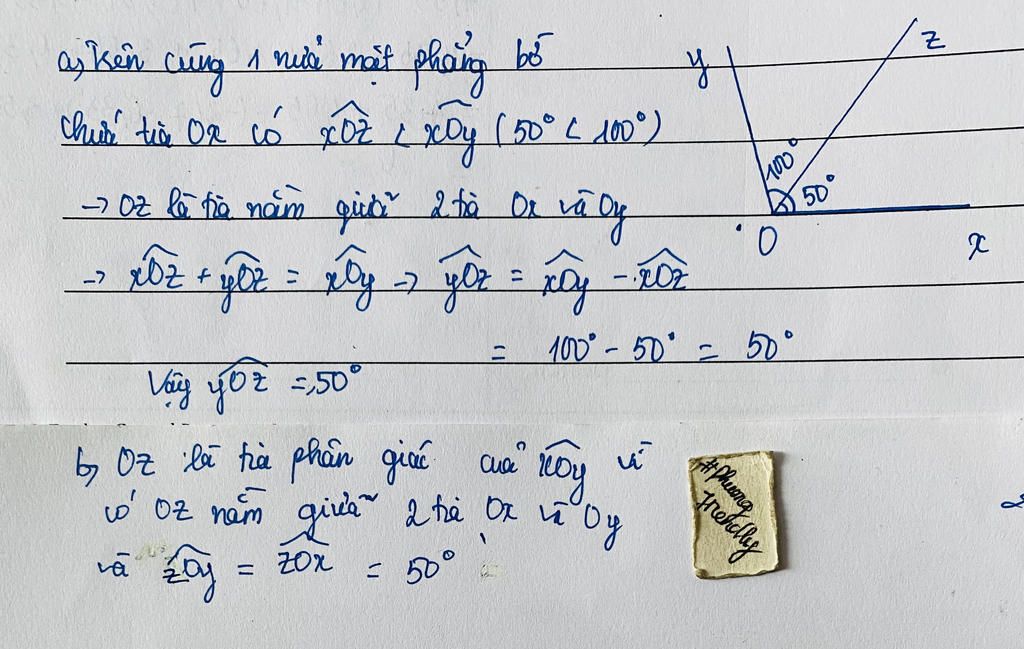 a, Trên cùng 1 nửa mặt phẳng bờ
chứa tia Ox có xÔz < xÔy (50° < 100°)
→ Oz là tia nằm giữa 2 tia Ox và Oy
→ xÔz + yÔz = xÔy → yÔz = xÔy - xÔz
= 100° - 50° = 50°
Vậy yÔz = 50°
y
z
100°
50°
O
x
b, Oz là tia phân giác của xÔy vì
có Oz nằm giữa 2 tia Ox và Oy
và zÔy = zÔx = 50°
#Phuong
Friendly